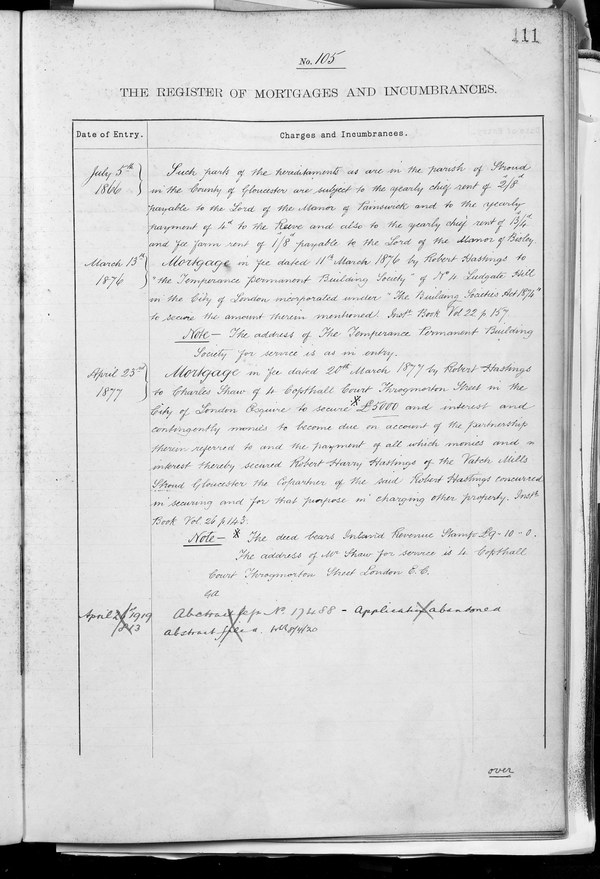 111
No. 105
THE REGISTER OF MORTGAGES AND INCUMBRANCES.
Date of Entry.
Charges and Incumbrances.
July 5th 1866
Such parts of the hereditaments as are in the parish of Stroud
in the County of Gloucester are subject to the yearly chief rent of 2/8d
payable to the Lord of the Manor of Painswick and to the yearly
payment of 4d to the Reeve and also to the yearly chief rent of
and fee farm rent of 1/8d payable to the Lord of the Manor of Bisley.
March 13th 1876
Mortgage in fee dated 11th March 1876 by Robert Hastings to
"the Temperance Permanent Building Society" of No 4 Ludgate Hill
in the City of London incorporated under "The Building Societies Act 1874"
to secure the amount therein mentioned. Inst. Book Vol 22 p 157.
Note - The address of The Temperance Permanent Building
Society for service is as in entry.
April 23rd 1877
Mortgage in fee dated 20th March 1877 by Robert Hastings
to Charles Shaw of 4 Copthall Court Throgmorton Street in the
City of London Esquire to secure £5000 and interest and
contingently monies to become due on account of the partnership
therein referred to and the payment of all which monies and
interest thereby secured Robert Harry Hastings of the Vatch Mills
Stroud Gloucester the Copartner of the said Robert Hastings concurred
in securing and for that purpose in charging other property. Inst.
Book Vol. 26 p 143.
Note - The deed bears Inland Revenue Stamp £9-10-0.
The address of Mr Shaw for service is 4 Copthall
Court Throgmorton Street London E.C.
April 1919
Abstract No 19488 - Application abandoned
Abstract
over